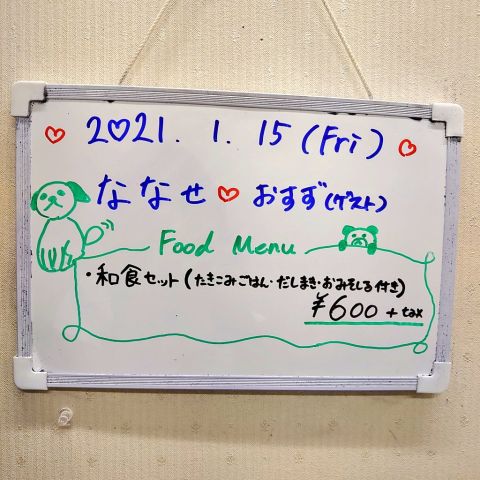 ♡ 2♡21. 1. 15 (Fri) ♡
ななせ ♡ おすず(ゲスト)
Food Menu
・和食セット(たきこみごはん・だしまき・おみそしる付き)
¥600 + tax